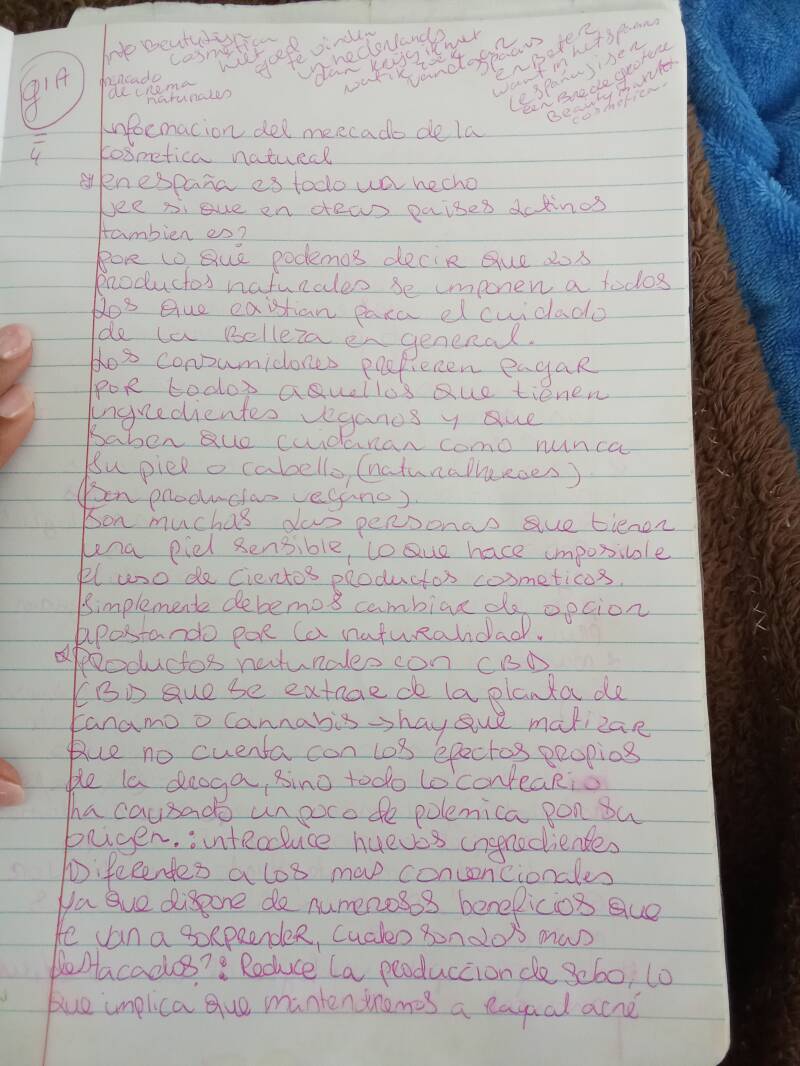 g1A
=
4
info Beautytips
cosmetica
niet goed vinden
in nederlands
dan krijg ik niet
wat ik zoek
vandaar spaans
en beter
want in het spaans
(españa) is er
een Brede grotere
Beauty markt
cosmetica.
mercado
de crema
naturales
informacion del mercado de la
cosmetica natural
en españa es todo un hecho
ver si que en otras paises latinos
tambien es?
por lo que podemos decir que los
productos naturales se imponen a todos
los que existian para el cuidado
de la Belleza en general.
Los consumidores prefieren pagar
por todos aquellos que tienen
ingredientes veganos y que
saben que cuidaran como nunca
su piel o cabello, (naturalheroes)
(son productos vegano).
Son muchas las personas que tienen
una piel sensible, lo que hace imposible
el uso de ciertos productos cosmeticos.
simplemente debemos cambiar de opcion
apostando por la naturalidad.
productos naturales con CBD
CBD que se extrae de la planta de
canamo o cannabis → hay que matizar
que no cuenta con los efectos propios
de la droga, sino todo lo contrario
ha causado un poco de polemica por su
origen.: introduce nuevos ingredientes
Diferentes a los mas convencionales
ya que dispone de numerosos beneficios que
te van a sorprender, cuales son los mas
destacados?: Reduce la produccion de sebo, lo
que implica que mantendremos a raya al acné